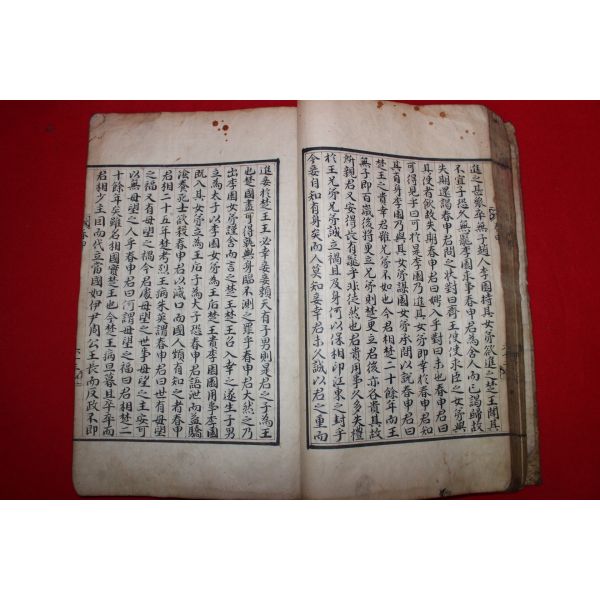 進之甚衆卒無子趙人李園持其女弟欲進之楚王聞其
不宜子恐久無寵李園求事春申君為舍人而已謁歸故
失期還謁春申君問之狀對曰齊王使使求臣之女弟與
其使者飲故失期春申君曰娉入乎對曰未也春申君曰
可得見乎曰可於是李園乃進其女弟即幸於春申君知
其有身李園乃與其女弟謀園女弟承間以說春申君曰
楚王之貴幸君雖兄弟不如也今君相楚二十餘年而王
無子即百歲後將更立兄弟則楚更立君後亦各貴其故
所親君又安得長有寵乎非徒然也君貴用事久多失禮
於王兄弟兄弟誠立禍且及身何以保相印江東之封乎
今妾自知有身矣而人莫知妾幸君未久誠以君之重而
進妾於楚王王必幸妾妾賴天有子男則是君之子為王
也楚國盡可得孰與身臨不測之罪乎春申君大然之乃
出李園女弟謹舍而言之楚王楚王召入幸之遂生子男
立為太子以李園女弟為王后楚王貴李園園用事李園
既入其女弟立為王后子為太子恐春申君語泄而益驕
陰養死士欲殺春申君以滅口而國人頗有知之者春申
君相二十五年楚考烈王病朱英謂春申君曰世有毋望
之福又有毋望之禍今君處毋望之世事毋望之主安可
以無毋望之人乎春申君曰何謂毋望之福曰君相楚二
十餘年矣雖名相國實楚王也今楚王病旦暮且卒卒而
君相少主因而代立當國如伊尹周公王長而反政不即